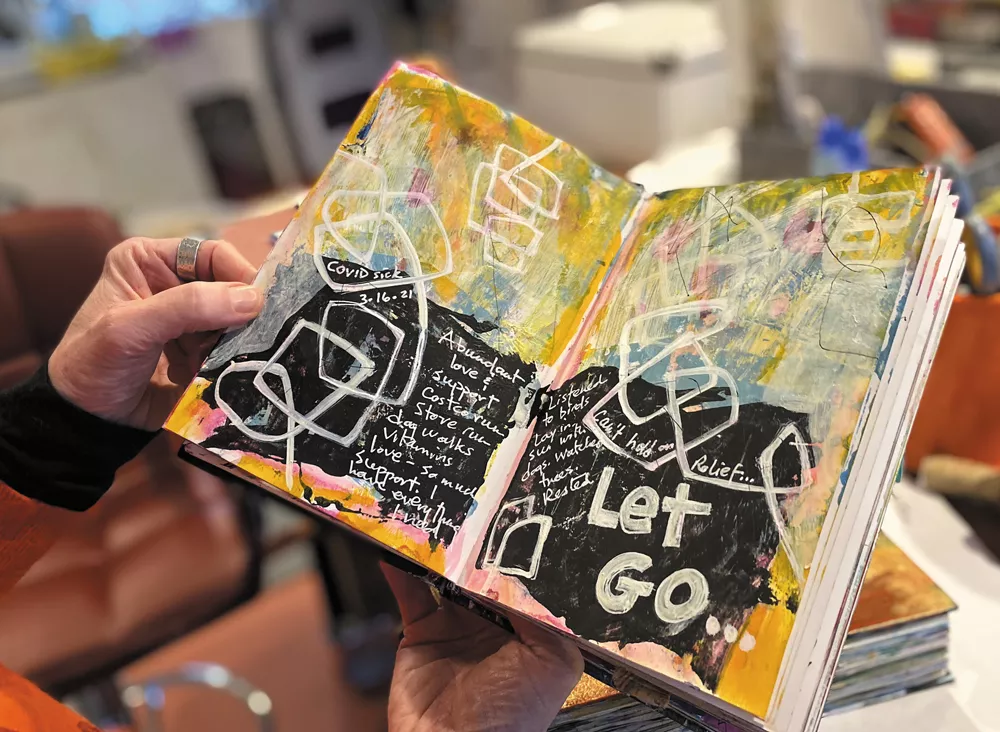 COVID sick
3.16.21
Abundant
love &
support
Costco run
Store run
dog walks
Vitamins
love - so much
support. I
have everything
I need
Listened
to birds
Lay in
sun with
dogs. Watched
trees.
Rested
Can't hold on
Relief...
Let
Go...